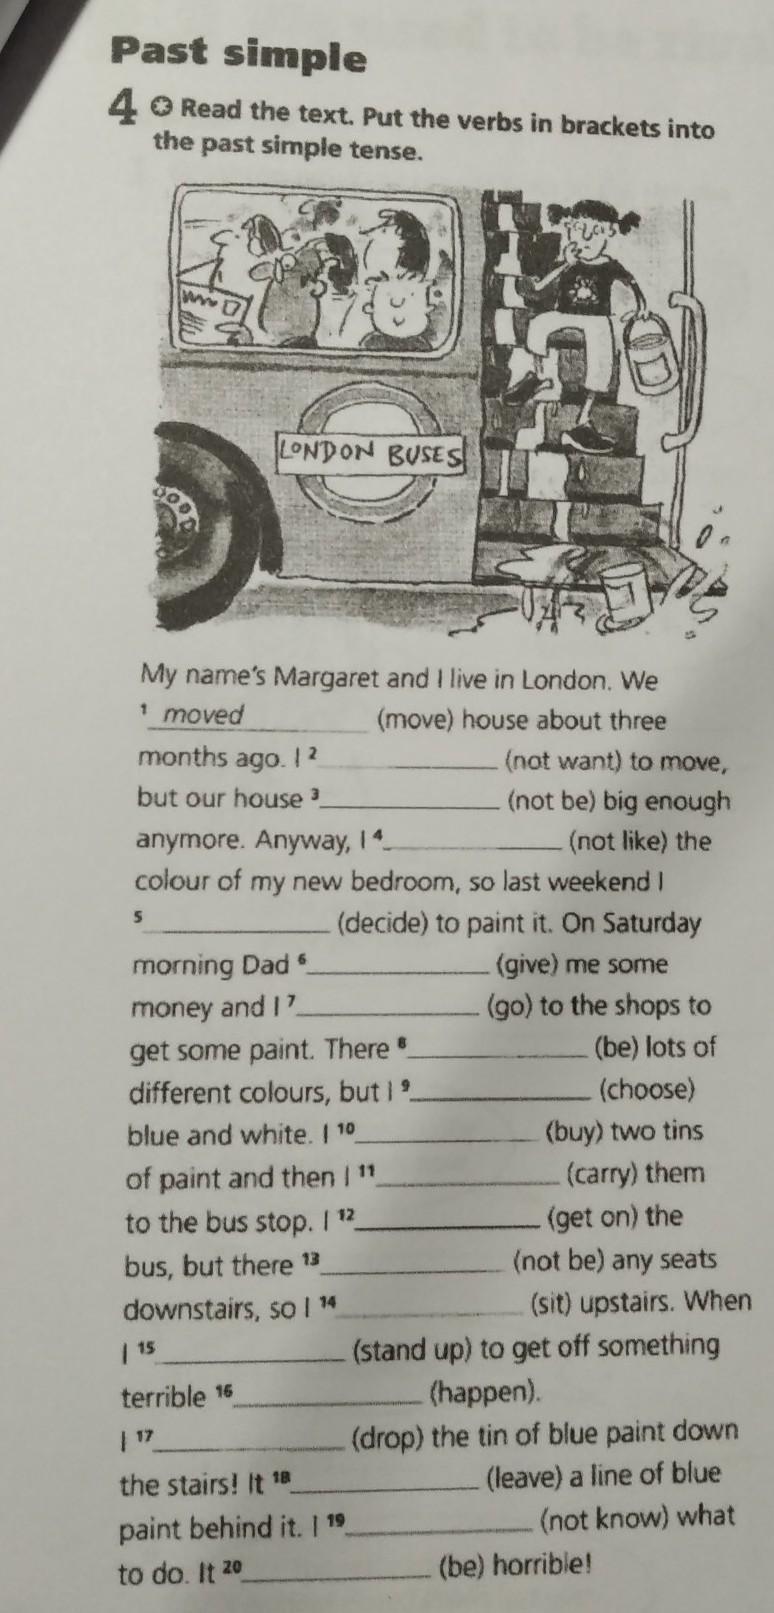 Past simple
4 Read the text. Put the verbs in brackets into
the past simple tense.
LONDON BUSES
My name's Margaret and I live in London. We
¹ moved (move) house about three
months ago. I ²____________ (not want) to move,
but our house ³____________ (not be) big enough
anymore. Anyway, I ⁴____________ (not like) the
colour of my new bedroom, so last weekend I
⁵____________ (decide) to paint it. On Saturday
morning Dad ⁶____________ (give) me some
money and I ⁷____________ (go) to the shops to
get some paint. There ⁸____________ (be) lots of
different colours, but I ⁹____________ (choose)
blue and white. I ¹⁰____________ (buy) two tins
of paint and then I ¹¹____________ (carry) them
to the bus stop. I ¹²____________ (get on) the
bus, but there ¹³____________ (not be) any seats
downstairs, so I ¹⁴____________ (sit) upstairs. When
I ¹⁵____________ (stand up) to get off something
terrible ¹⁶____________ (happen).
I ¹⁷____________ (drop) the tin of blue paint down
the stairs! It ¹⁸____________ (leave) a line of blue
paint behind it. I ¹⁹____________ (not know) what
to do. It ²⁰____________ (be) horrible!